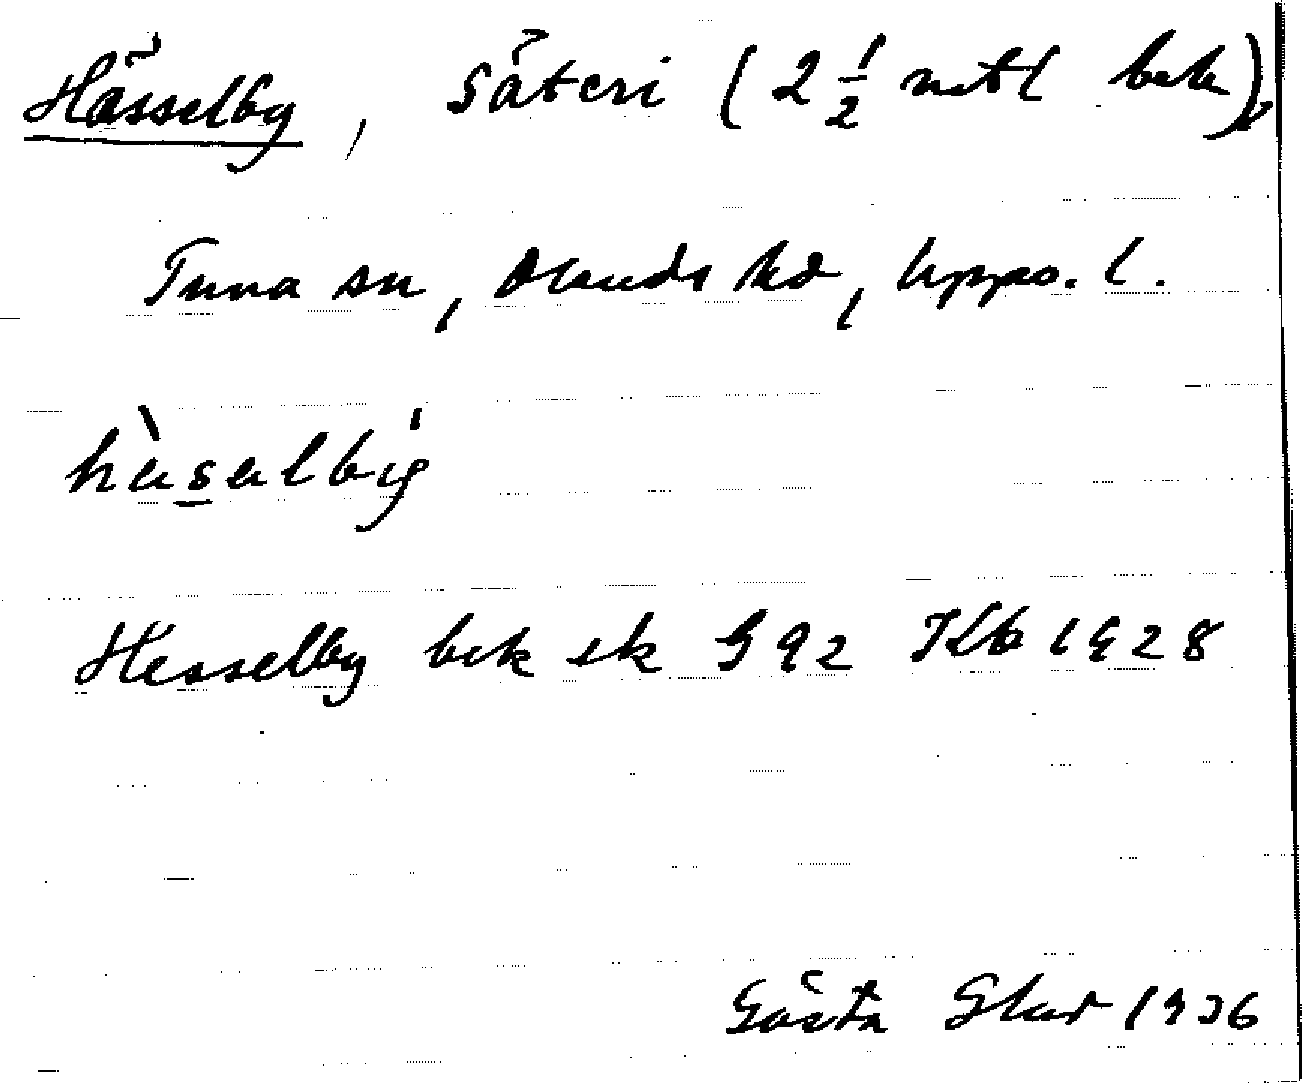 Hässelby, säteri (2 1/2 mtl bek),
Tuna sn, Olands hd, Upps. l.
hèsəlbi̯
Hesselby bek ek G 92 Kb 1928
Gösta 1936